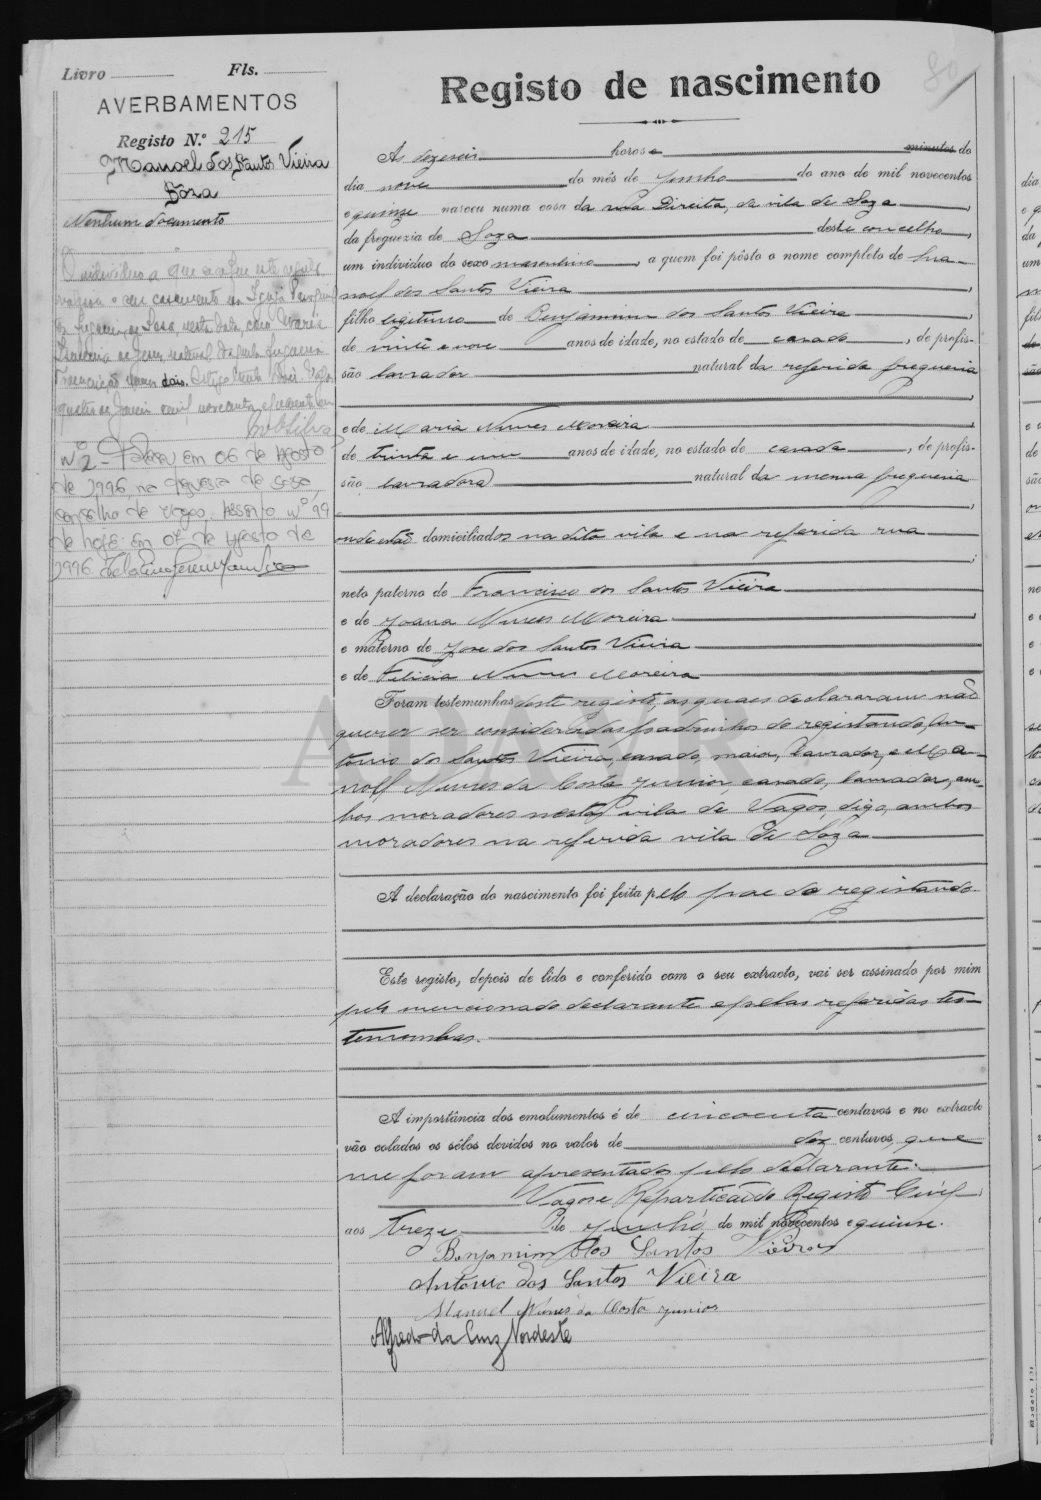 Livro Fls.
AVERBAMENTOS
Registo N.º 215
Manoel dos Santos Vieira
Sôza
Nenhum documento
O individuo a que se refere este registo
o seu casamento na Igreja
de, nesta data, com Maria
natural daquela freguesia
Transcrição numero dois.
quatro de Janeiro mil novecentos e quarenta
Silva
Nº 2 - Faleceu em 06 de Agosto
de 1996, na freguesia de Sosa,
concelho de Vagos. Assento nº 99
de hoje. Em 07 de Agosto de
1996.
80
Registo de nascimento
Às dezeseis horas e minutos do
dia nove do mês de Junho do ano de mil novecentos
e quinze nasceu numa casa da rua Direita, da vila de Soza
da freguezia de Soza deste concelho,
um individuo do sexo masculino, a quem foi pôsto o nome completo de Ma-
noel dos Santos Vieira
filho legitimo de Benjamim dos Santos Vieira
de vinte e nove anos de idade, no estado de casado, de profis-
são lavrador natural da referida freguesia
e de Maria Nunes Moreira
de trinta e um anos de idade, no estado de casada, de profis-
são lavradora natural da mesma freguesia
onde estão domiciliados na dita vila e na referida rua
neto paterno de Francisco dos Santos Vieira
e de Joana Nunes Moreira
e materno de José dos Santos Vieira
e de Felicia Nunes Moreira
Foram testemunhas deste registo, as quaes declararam não
querer ser consideradas padrinhos do registando, An-
tonio dos Santos Vieira, casado, maior, lavrador, e Ma-
noel Nunes da Costa Junior, casado, lavrador, am-
bos moradores nesta vila de Vagos, digo, ambos
moradores na referida vila de Soza
A declaração do nascimento foi feita pelo pae do registando
Este registo, depois de lido e conferido com o seu extracto, vai ser assinado por mim
pelo mencionado declarante e pelas referidas tes-
temunhas.
A importância dos emolumentos é de cincoenta centavos e no extracto
vão colados os sêlos devidos no valor de dez centavos, que
me foram apresentados pelo declarante.
Vagos e Repartição do Registo Civil
aos treze de Junho de mil novecentos e quinze.
Benjamim dos Santos Vieira
Antonio dos Santos Vieira
Manuel Nunes da Costa Junior
Alfredo da Cruz Nordeste
ADAVR